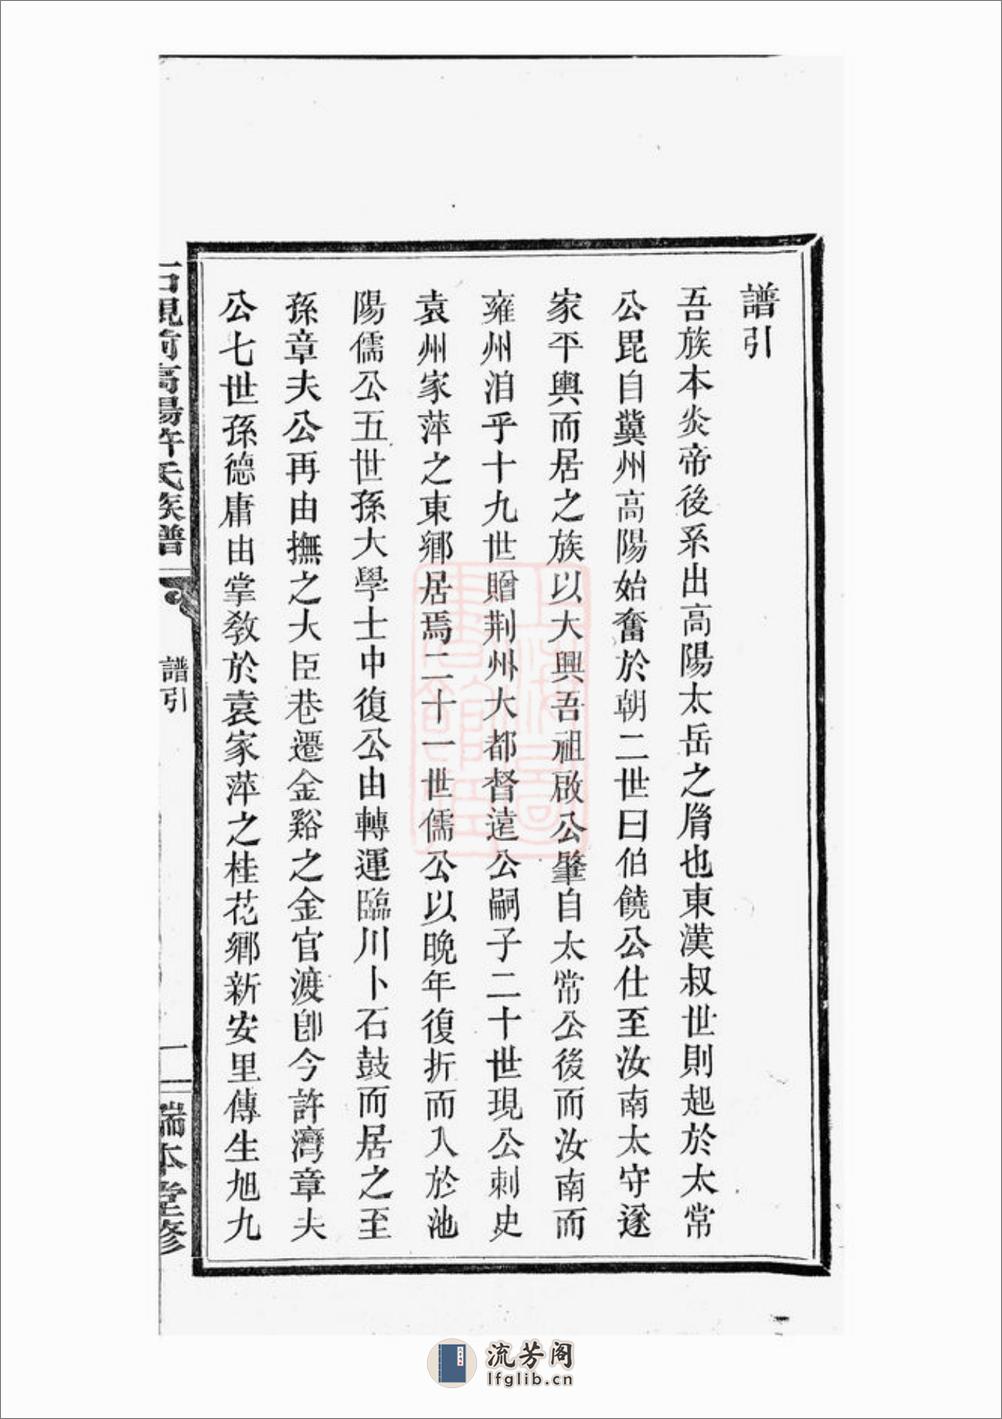 譜引
吾族本炎帝後系出高陽太岳之胤也東漢叔世則起於太常
公毘自冀州高陽始奮於朝二世曰伯饒公仕至汝南太守遂
家平輿而居之族以大興吾祖啟公肇自太常公後而汝南而
雍州洎乎十九世贈荆州大都督遠公嗣子二十世現公刺史
袁州家萍之東鄉居焉二十一世儒公以晚年復折而入於池
陽儒公五世孫大學士中復公由轉運臨川卜石鼓而居之至
孫章夫公再由撫之大臣巷遷金谿之金官渡卽今許灣章夫
公七世孫德庸由掌敎於袁家萍之桂花鄉新安里傳生旭九
石觀前高陽許氏族譜
譜引
一
端本堂修
流芳阁
lfglib.cn